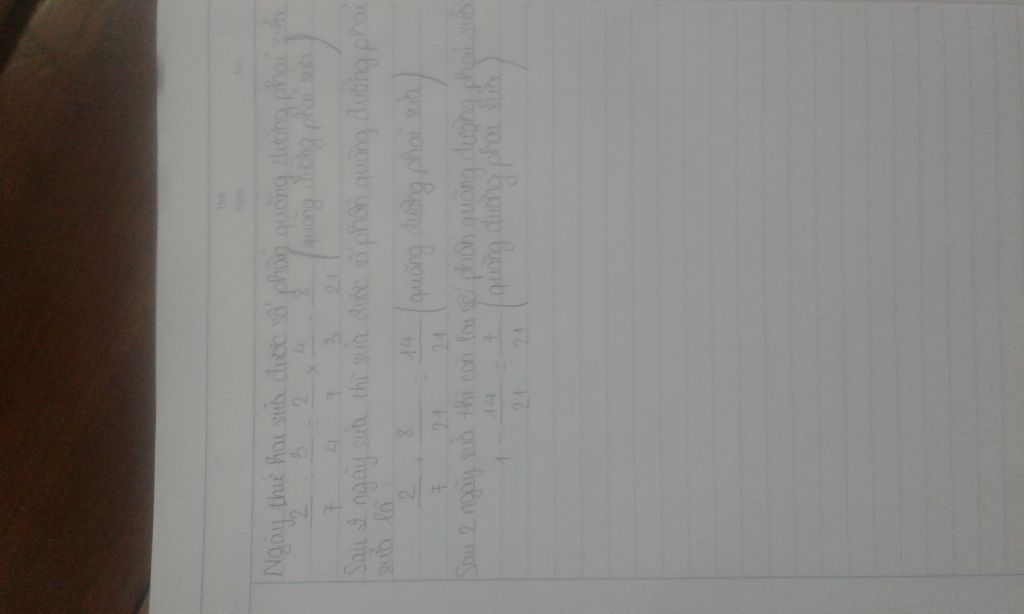 Thứ
Ngày
No.
Ngày thứ hai sửa được số phần quãng đường phải sửa
2/7 : 3/4 = 2/7 x 4/3 = 8/21 (quãng đường phải sửa)
Sau 2 ngày sửa thì sửa được số phần quãng đường phải
sửa là:
2/7 + 8/21 = 14/21 (quãng đường phải sửa)
Sau 2 ngày sửa thì còn lại số phần quãng đường phải sửa
1 - 14/21 = 7/21 (quãng đường phải sửa)